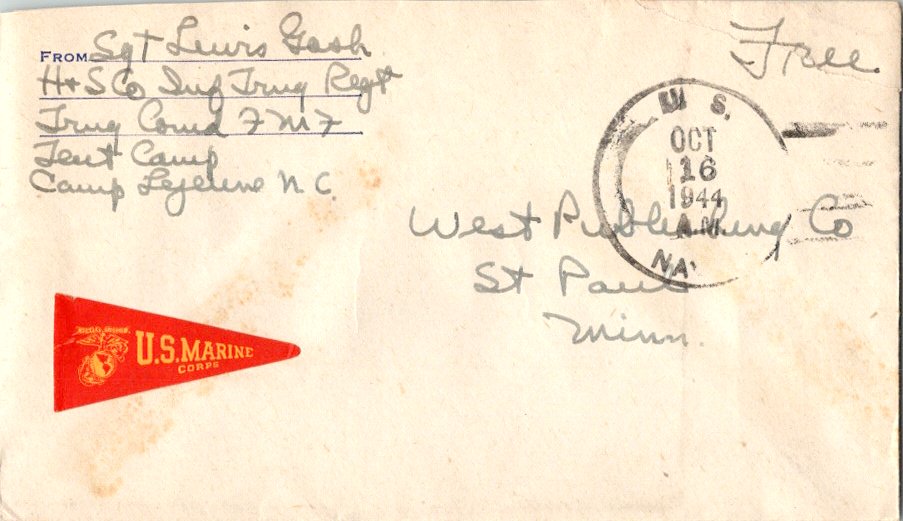 FROM Sgt Lewis Gash
H+S Co Inf Trng Regt
Trng Comd FMF
Tent Camp
Camp Lejeune N.C.
Free
U.S.
OCT
16
1944
A.M.
NAVY
West Publishing Co
St Paul
Minn.
U.S. MARINE
CORPS